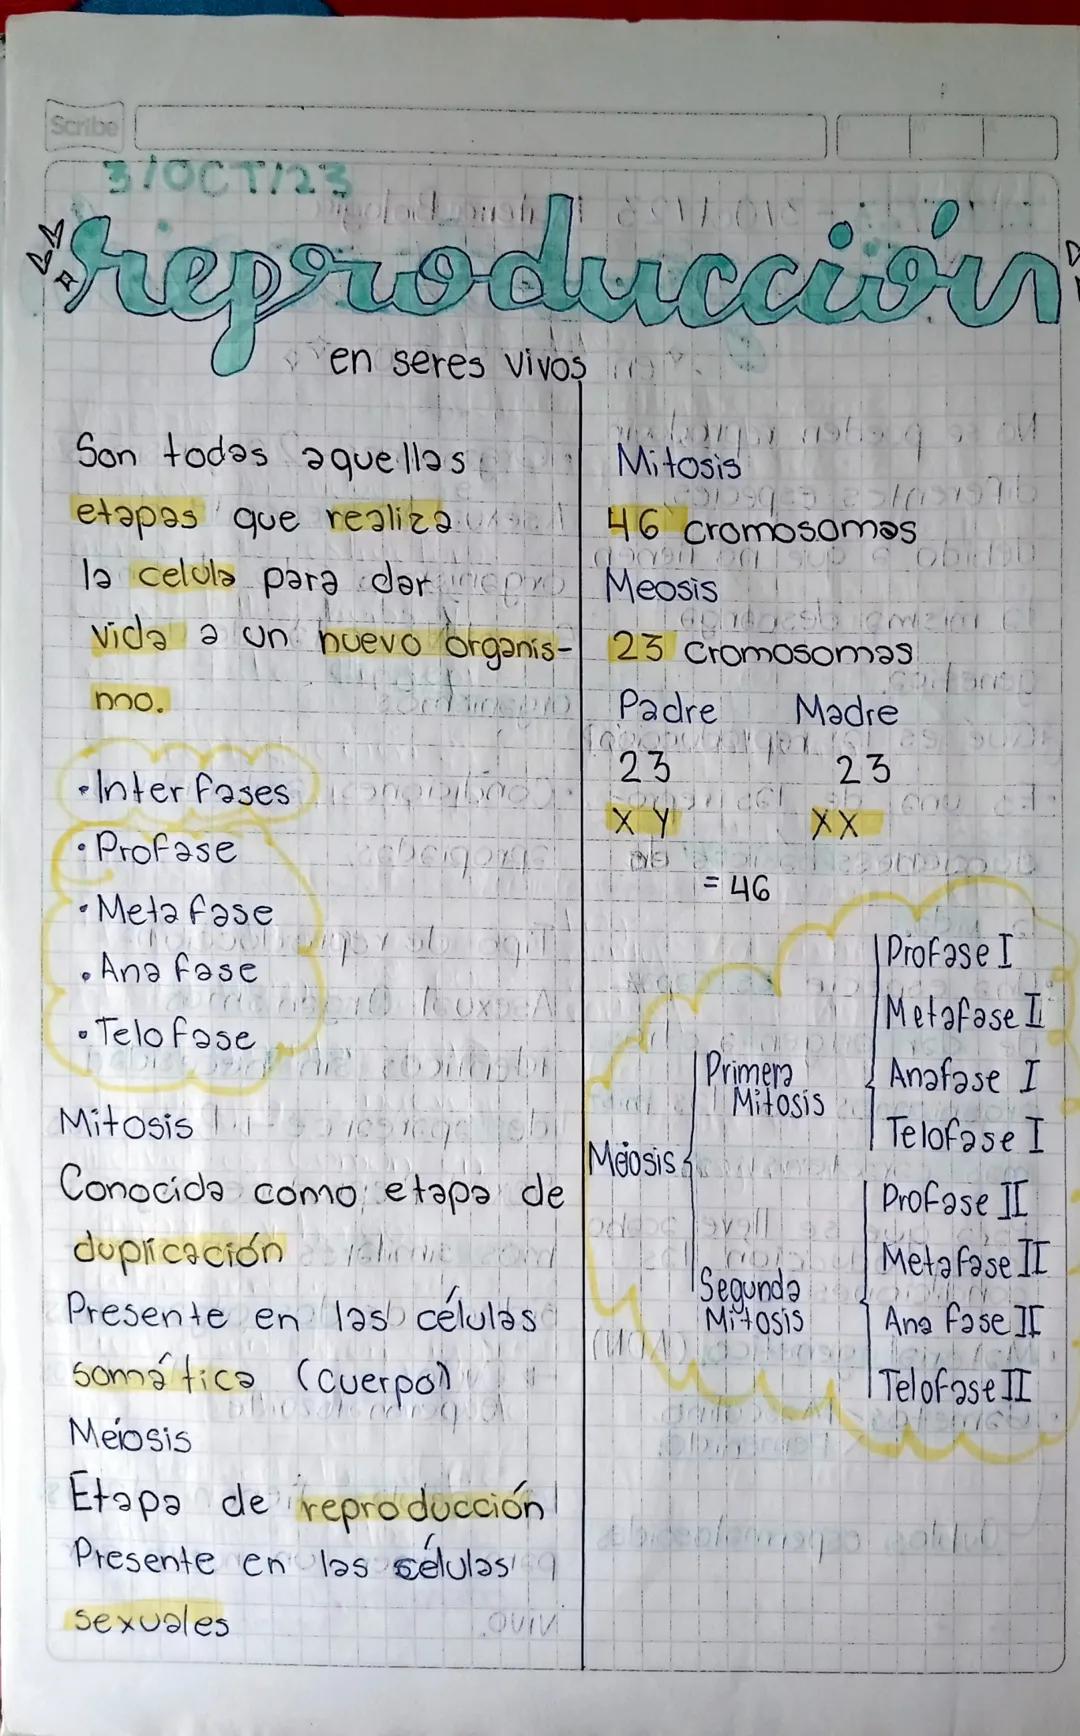 Scribe
3/OCT/23
reproducción
en seres vivos
Son todas aquellas
etapas que realiza
la celula para dar
vida a un nuevo organis-
mo.
• Inter fases
• Profase
• Meta fase
• Ana fase
• Telo fase
Mitosis
Conocida como etapa de
duplicación
Presente en las células
somática (cuerpo)
Meíosis
Etapa de reproducción
Presente en las células
sexuales
Mitosis
46 cromosomas
Meosis
23 cromosomas
Padre Madre
23 23
X Y XX
= 46
Meiosis
Primera
Mitosis
Profase I
Metafase I
Anafase I
Telofase I
Segunda
Mitosis
Profase II
Metafase II
Ana fase II
Telofase II